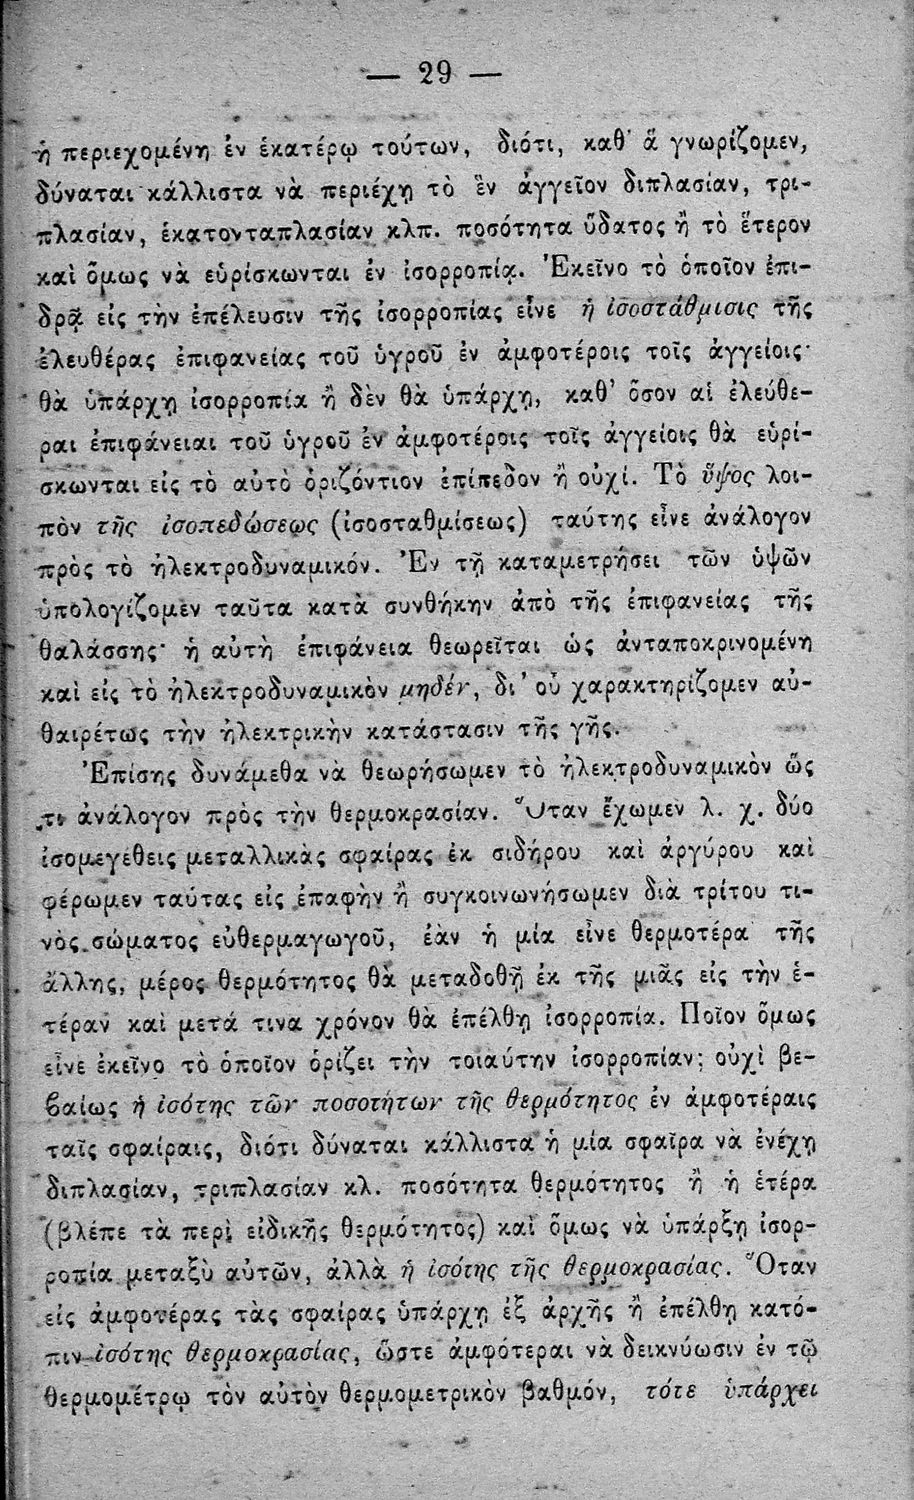 — 29 —
ἡ περιεχομένη ἐν ἑκατέρῳ τούτων, διότι, καθ' ἃ γνωρίζομεν,
δύναται κάλλιστα νὰ περιέχῃ τὸ ἓν ἀγγεῖον διπλασίαν, τρι-
πλασίαν, ἑκατονταπλασίαν κλπ. ποσότητα ὕδατος ἢ τὸ ἕτερον
καὶ ὅμως νὰ εὑρίσκωνται ἐν ἰσορροπίᾳ. Ἐκεῖνο τὸ ὁποῖον ἐπι-
δρᾷ εἰς τὴν ἐπέλευσιν τῆς ἰσορροπίας εἶνε ἡ ἰσοστάθμισις τῆς
ἐλευθέρας ἐπιφανείας τοῦ ὑγροῦ ἐν ἀμφοτέροις τοῖς ἀγγείοις·
θὰ ὑπάρχῃ ἰσορροπία ἢ δὲν θὰ ὑπάρχῃ, καθ' ὅσον αἱ ἐλεύθε-
ραι ἐπιφάνειαι τοῦ ὑγροῦ ἐν ἀμφοτέροις τοῖς ἀγγείοις θὰ εὑρί-
σκωνται εἰς τὸ αὐτὸ ὁριζόντιον ἐπίπεδον ἢ οὐχί. Τὸ ὕψος λοι-
πὸν τῆς ἰσοπεδώσεως (ἰσοσταθμίσεως) ταύτης εἶνε ἀνάλογον
πρὸς τὸ ἠλεκτροδυναμικόν. Ἐν τῇ καταμετρήσει τῶν ὑψῶν
ὑπολογίζομεν ταῦτα κατὰ συνθήκην ἀπὸ τῆς ἐπιφανείας τῆς
θαλάσσης· ἡ αὐτὴ ἐπιφάνεια θεωρεῖται ὡς ἀνταποκρινομένη
καὶ εἰς τὸ ἠλεκτροδυναμικὸν μηδέν, δι' οὗ χαρακτηρίζομεν αὐ-
θαιρέτως τὴν ἠλεκτρικὴν κατάστασιν τῆς γῆς.
Ἐπίσης δυνάμεθα νὰ θεωρήσωμεν τὸ ἠλεκτροδυναμικὸν ὥς
τι ἀνάλογον πρὸς τὴν θερμοκρασίαν. Ὅταν ἔχωμεν λ. χ. δύο
ἰσομεγέθεις μεταλλικὰς σφαίρας ἐκ σιδήρου καὶ ἀργύρου καὶ
φέρωμεν ταύτας εἰς ἐπαφὴν ἢ συγκοινωνήσωμεν διὰ τρίτου τι-
νὸς σώματος εὐθερμαγωγοῦ, ἐὰν ἡ μία εἶνε θερμοτέρα τῆς
ἄλλης, μέρος θερμότητος θὰ μεταδοθῇ ἐκ τῆς μιᾶς εἰς τὴν ἑ-
τέραν καὶ μετά τινα χρόνον θὰ ἐπέλθῃ ἰσορροπία. Ποῖον ὅμως
εἶνε ἐκεῖνο τὸ ὁποῖον ὁρίζει τὴν τοιαύτην ἰσορροπίαν; οὐχὶ βε-
βαίως ἡ ἰσότης τῶν ποσοτήτων τῆς θερμότητος ἐν ἀμφοτέραις
ταῖς σφαίραις, διότι δύναται κάλλιστα ἡ μία σφαῖρα νὰ ἐνέχῃ
διπλασίαν, τριπλασίαν κλ. ποσότητα θερμότητος ἢ ἡ ἑτέρα
(βλέπε τὰ περὶ εἰδικῆς θερμότητος) καὶ ὅμως νὰ ὑπάρξῃ ἰσορ-
ροπία μεταξὺ αὐτῶν, ἀλλὰ ἡ ἰσότης τῆς θερμοκρασίας. Ὅταν
εἰς ἀμφοτέρας τὰς σφαίρας ὑπάρχῃ ἐξ ἀρχῆς ἢ ἐπέλθῃ κατό-
πιν ἰσότης θερμοκρασίας, ὥστε ἀμφότεραι νὰ δεικνύωσιν ἐν τῷ
θερμομέτρῳ τὸν αὐτὸν θερμομετρικὸν βαθμόν, τότε ὑπάρχει